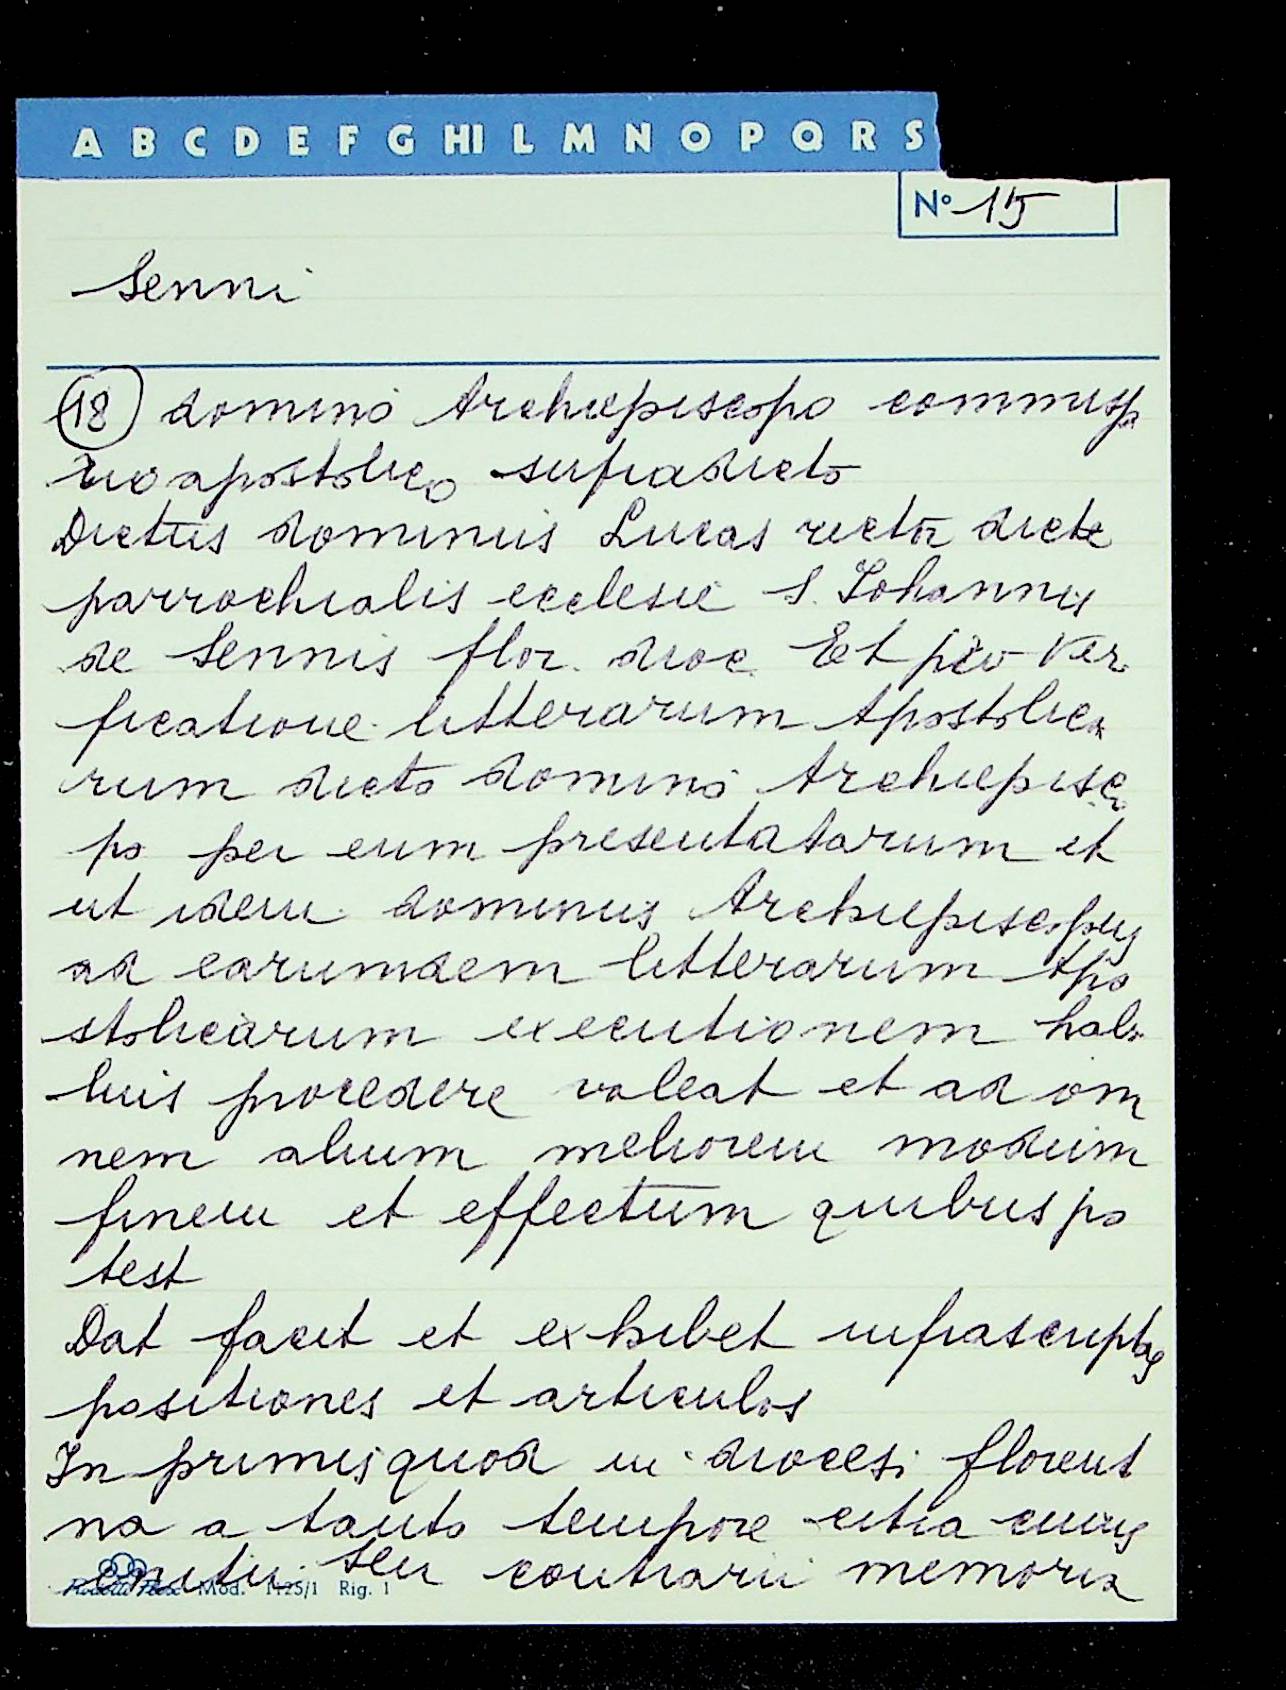 A B C D E F G HI L M N O P Q R S
N° 15
Senni
18 domino Archiepiscopo commissa
rio apostolico supradicto
Dictus dominus Lucas rector dicte
parrochialis ecclesie S. Iohannis
de Sennis flor. dioc. Et pro Veri
ficatione litterarum Apostolica
rum dicto domino Archiepisco
po per eum presentatarum et
ut idem dominus Archiepiscopus
ad earumdem litterarum Apo
stolicarum executionem
procedere valeat et ad om
nem alium meliorem modum
finem et effectum quibus po
test
Dat facit et exhibet infrascriptas
positiones et articulos
In primis quod in diocesi florenti
na a tanto tempore citra cuius
initii seu contrarii memoria
Mod. 1125/1 Rig. 1